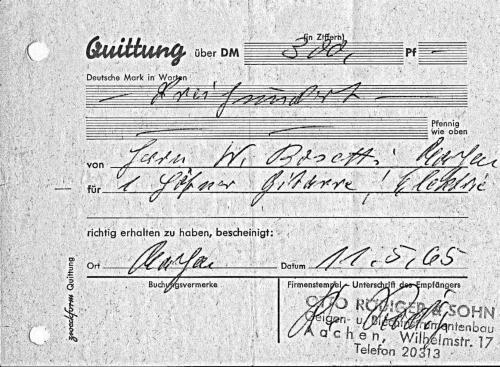 (in Ziffern)
Quittung über DM 300,- Pf -
Deutsche Mark in Worten
- Dreihundert -
Pfennig
wie oben
von Herrn W. Bosetti, Aachen
für 1 Höfner Gitarre / Elektric
richtig erhalten zu haben, bescheinigt:
Ort Aachen Datum 11.5.65
Buchungsvermerke Firmenstempel - Unterschrift des Empfängers
OTTO RÖDIGER & SOHN
Geigen- u. Blechinstrumentenbau
Aachen, Wilhelmstr. 17
Telefon 20313
zweckform Quittung